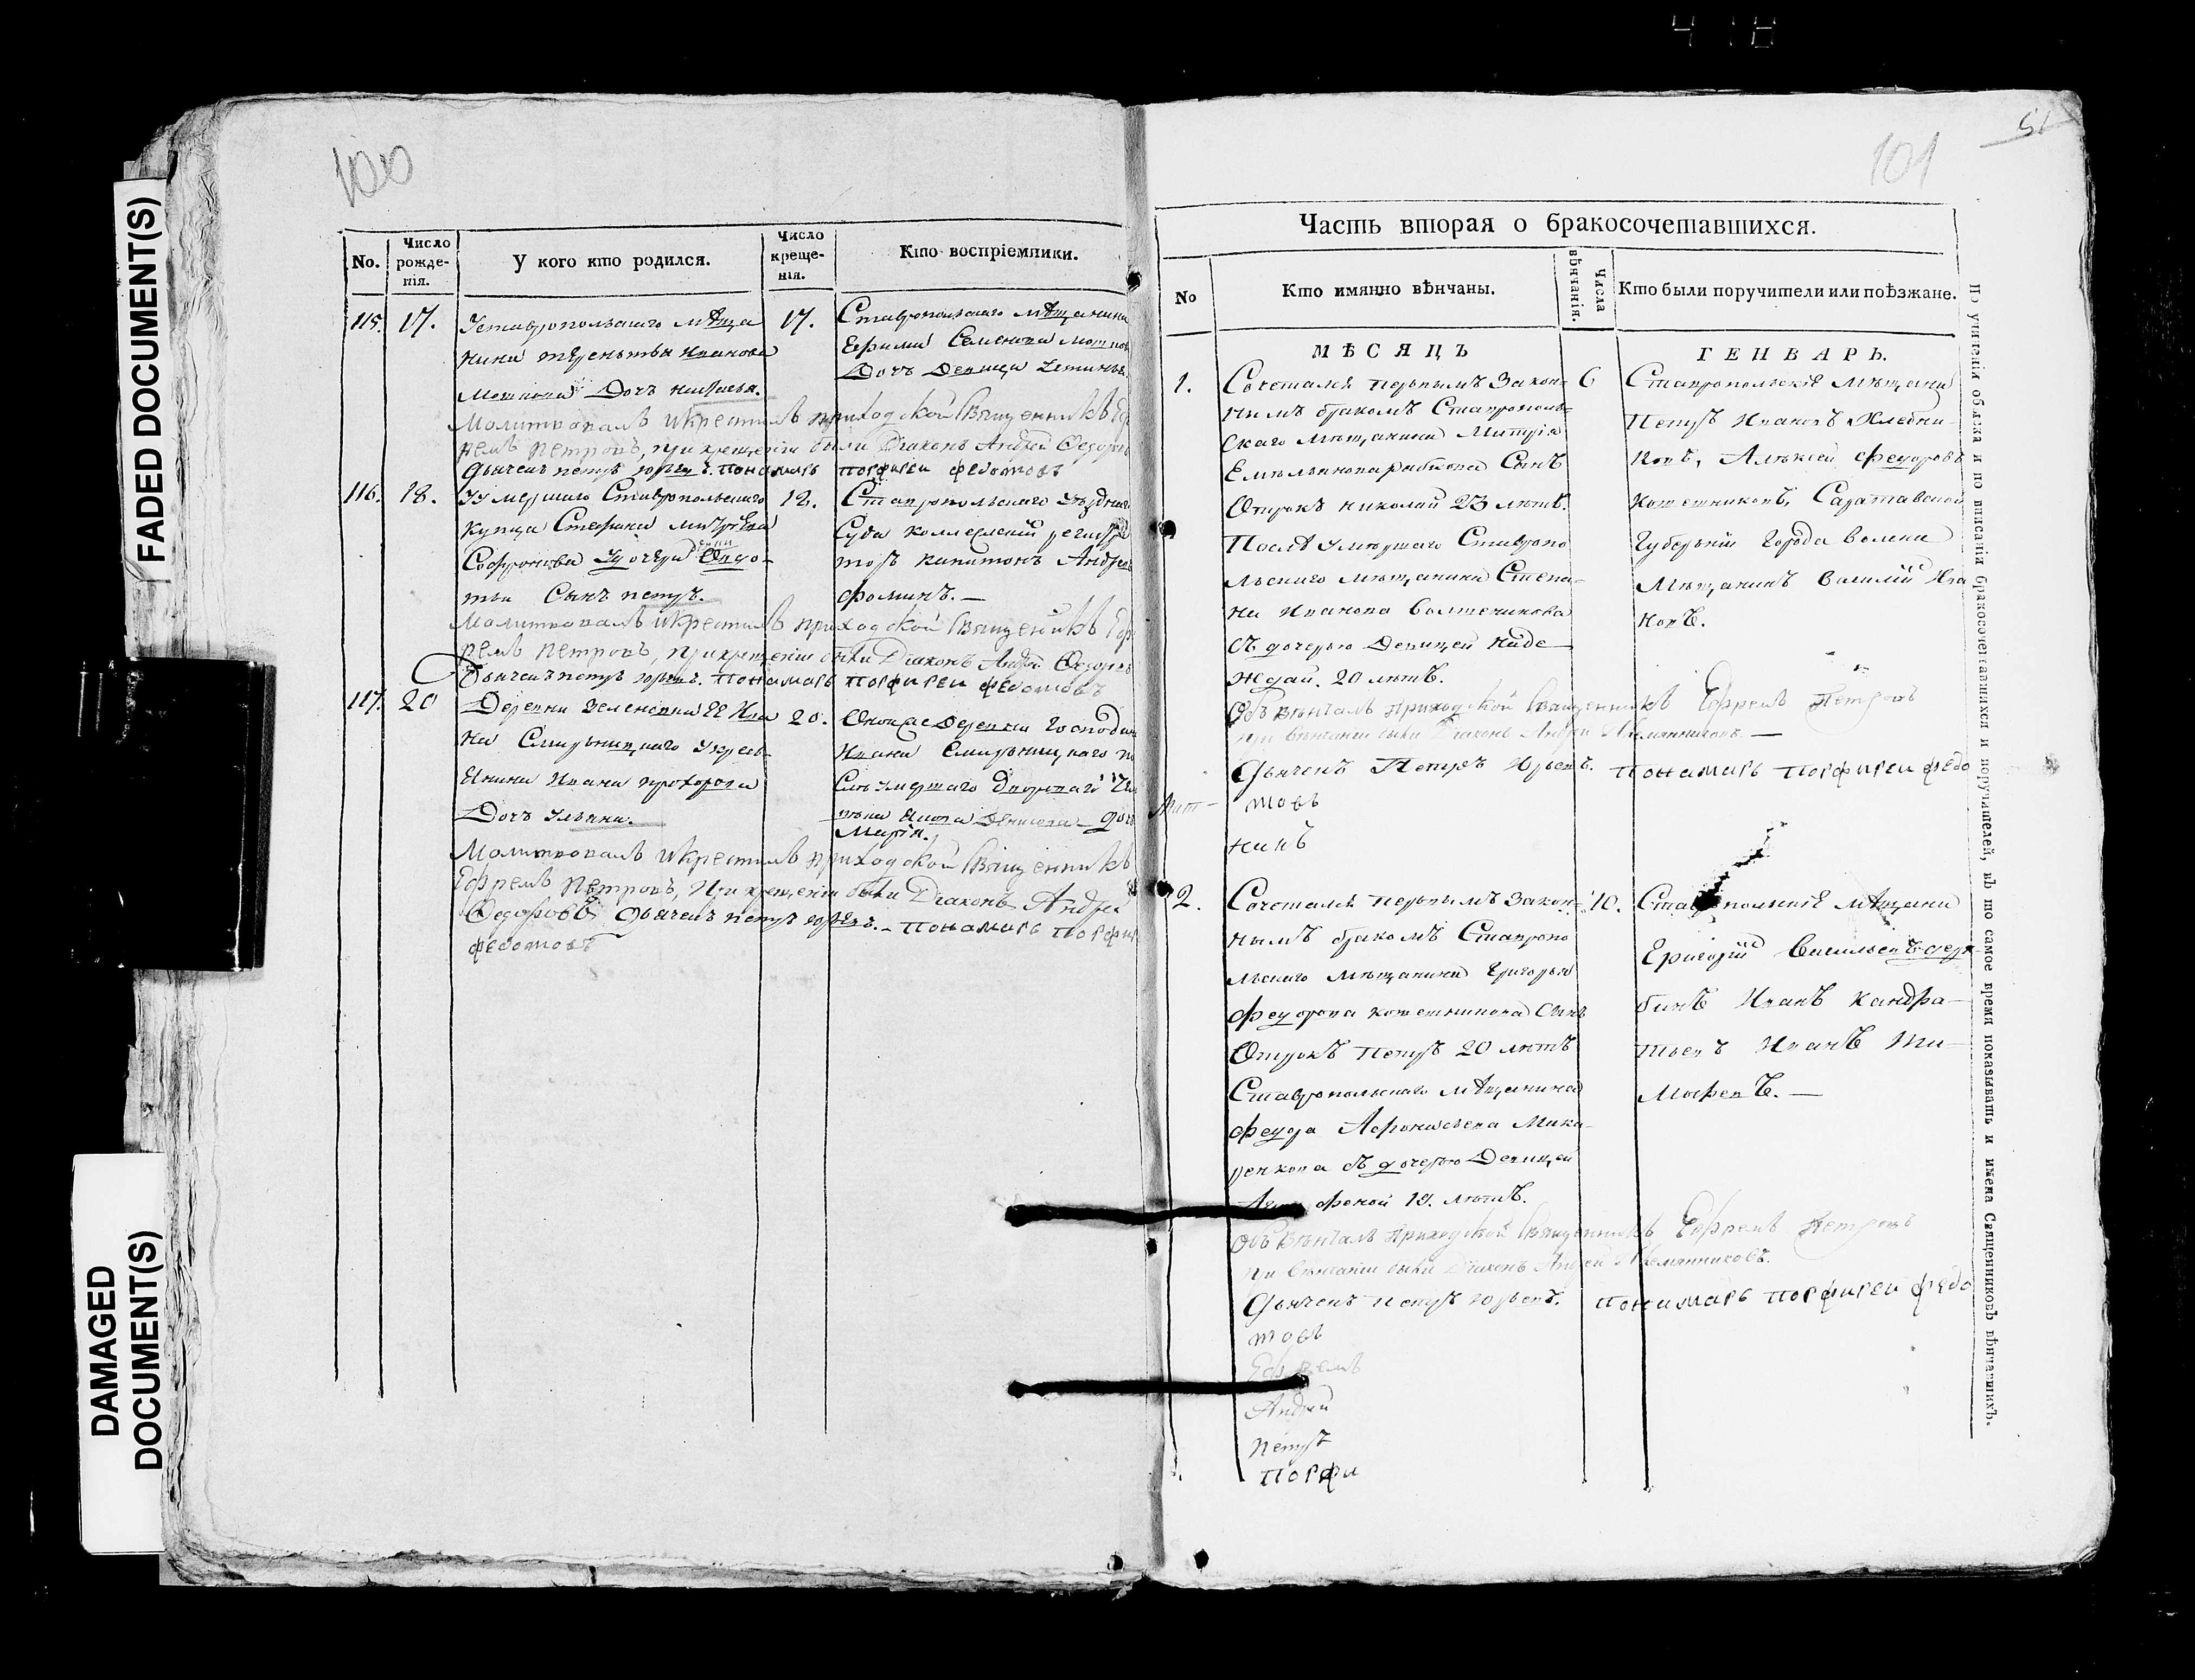 418
FADED DOCUMENT(S)
DAMAGED
DOCUMENT(S)
100
No.
Число
рожде-
нія.
У кого кто родился.
Число
креще-
нія.
Кто воспріемники.
115.
17.
Уставропольскаго мѣща
нина
Иванова
Дочь
17.
Ставропольскаго мѣщанина
Ефима Семенова
Дочь Девица
Молитвовалъ икрестилъ приходской Священникъ Еф
ремъ Петровъ, при крещеніи были Діаконъ Андрей Федоровъ
Дьячекъ петръ юрьевъ. пономарь порфиреи федотовъ
116.
18.
Уумершаго Ставропольскаго
купца Стефана
Софронова Удочери Авдо-
тьи Сынъ петръ.
18.
Ставропольскаго Уѣзднаго
Суда коллескій регистра
торъ капитонъ Андреевъ
фоминъ. —
Молитвовалъ икрестилъ приходской Священникъ Еф
ремъ Петровъ, прикрещеніи были Діаконъ Андрей Федоровъ
Дьячекъ петръ юрьевъ. пономарь порфиреи федотовъ
117.
20
Деревни Зеленовки ЕЕ Ива
на
Ивана прохорова
Дочь Ульяна.
20.
Оной же Деревни Господина
Ивана
умершаго Дворового
Марія.
Молитвовалъ икрестилъ приходской Священникъ
Ефремъ Петровъ, При крещеніи были Діаконъ Андрей
Федоровъ Дьячекъ петръ юрьевъ. – пономарь порфи
федотовъ
101
51
Часть вторая о бракосочетавшихся.
No
Кто имянно вѣнчаны.
Числа
вѣнчанія.
Кто были поручители или поѣзжане.
МѢСЯЦЪ
ГЕНВАРЬ.
1.
Сочетался первымъ Закон-
нымъ бракомъ Ставрополь-
скаго мѣщанина Митрія
Емельянова Сынъ
Отрокъ николай 23 лѣтъ.
Послѣ Умершаго Ставропо
льскаго мѣщанина Степа-
на Иванова
съ дочерью Девицей наде-
ждой. 20 лѣтъ.
6
Ставропольскіе Мѣщане
Петръ Ивановъ Хлебни-
ковъ, Алексей Федоровъ
Саратавской
Губерніи Города волска
Мѣщанинъ Василій Ива
новъ.
Объвѣнчалъ приходской Священникъ Ефремъ Петровъ
при вѣнчаніи были Діаконъ Андрей Племянниковъ —
Дьячекъ Петръ Юрьевъ. пономарь порфиреи федо
товъ
нинъ
2.
Сочетался первымъ Закон-
нымъ бракомъ Ставропо
льскаго мѣщанина Григорья
федорова Сынъ
Отрокъ петръ 20 лѣтъ
Ставропольскаго мѣщанина
федора Афонасьева Мака-
ренкова съ дочерью Девицей
феной 19. лѣтъ.
10.
Ставропольскіе мѣщане
Григорій Васильевъ
бинъ Иванъ кандра-
тьевъ Иванъ Ти-
мофеевъ. —
Объвѣнчалъ приходской Священникъ Ефремъ Петровъ
при вѣнчаніи были Діаконъ Андрей Племянниковъ.
Дьячекъ петръ юрьевъ. пономарь порфиреи федо
товъ
Ефремъ
Андрей
петръ
порфи
По учиненіи обыска и по вписаніи бракосочетавшихся и поручителей, въ то самое время показывать и имена Священниковъ вѣнчавшихъ.